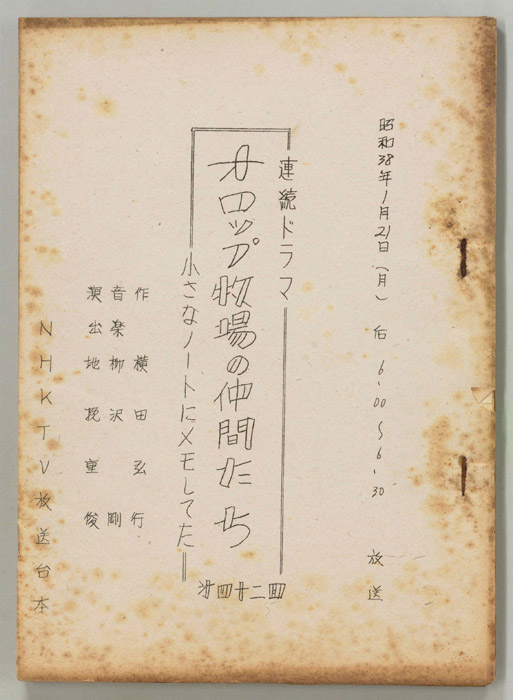 昭和38年1月21日(月) 后 6.00〜6.30 放送
連続ドラマ
カロップ牧場の仲間たち
小さなノートにメモしてた
才四十二回
作 横田弘行
音楽 柳沢剛
演出 地挽重俊
NHKTV放送台本